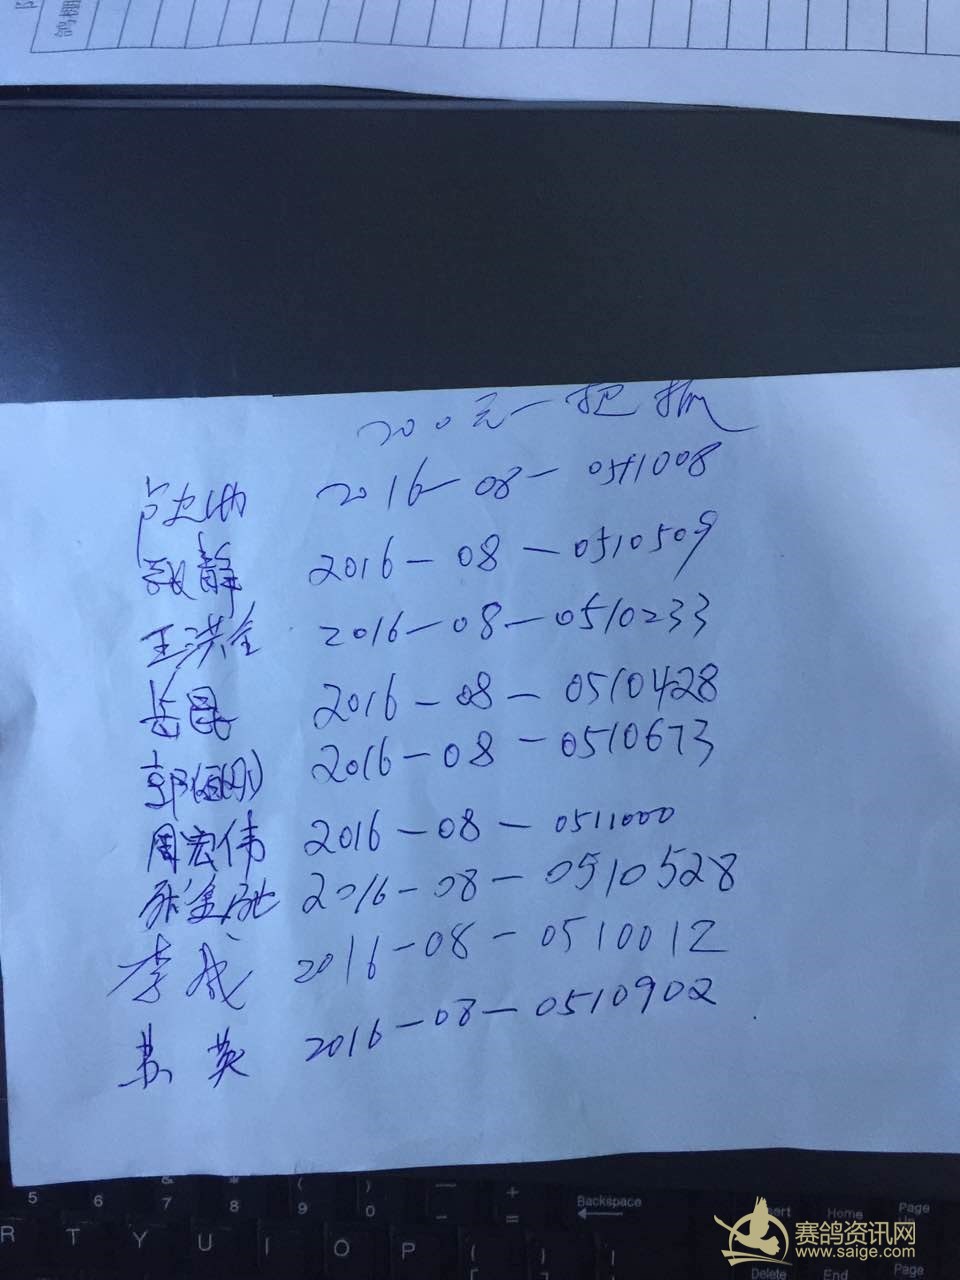 鸽棚
200元一把抓
卢 2016-08-0511008
张静 2016-08-0510509
王洪全 2016-08-0510233
岳昆 2016-08-0510428
郭 2016-08-0510673
周宏伟 2016-08-0511000
2016-08-0510528
李成 2016-08-0510012
苏英 2016-08-0510902
5 6 & 7 * 8 ( 9 ) 0 — - + = Backspace Home Page
R T Y U I O P { [ } ] Delete End Page
赛鸽资讯网
www.saige.com